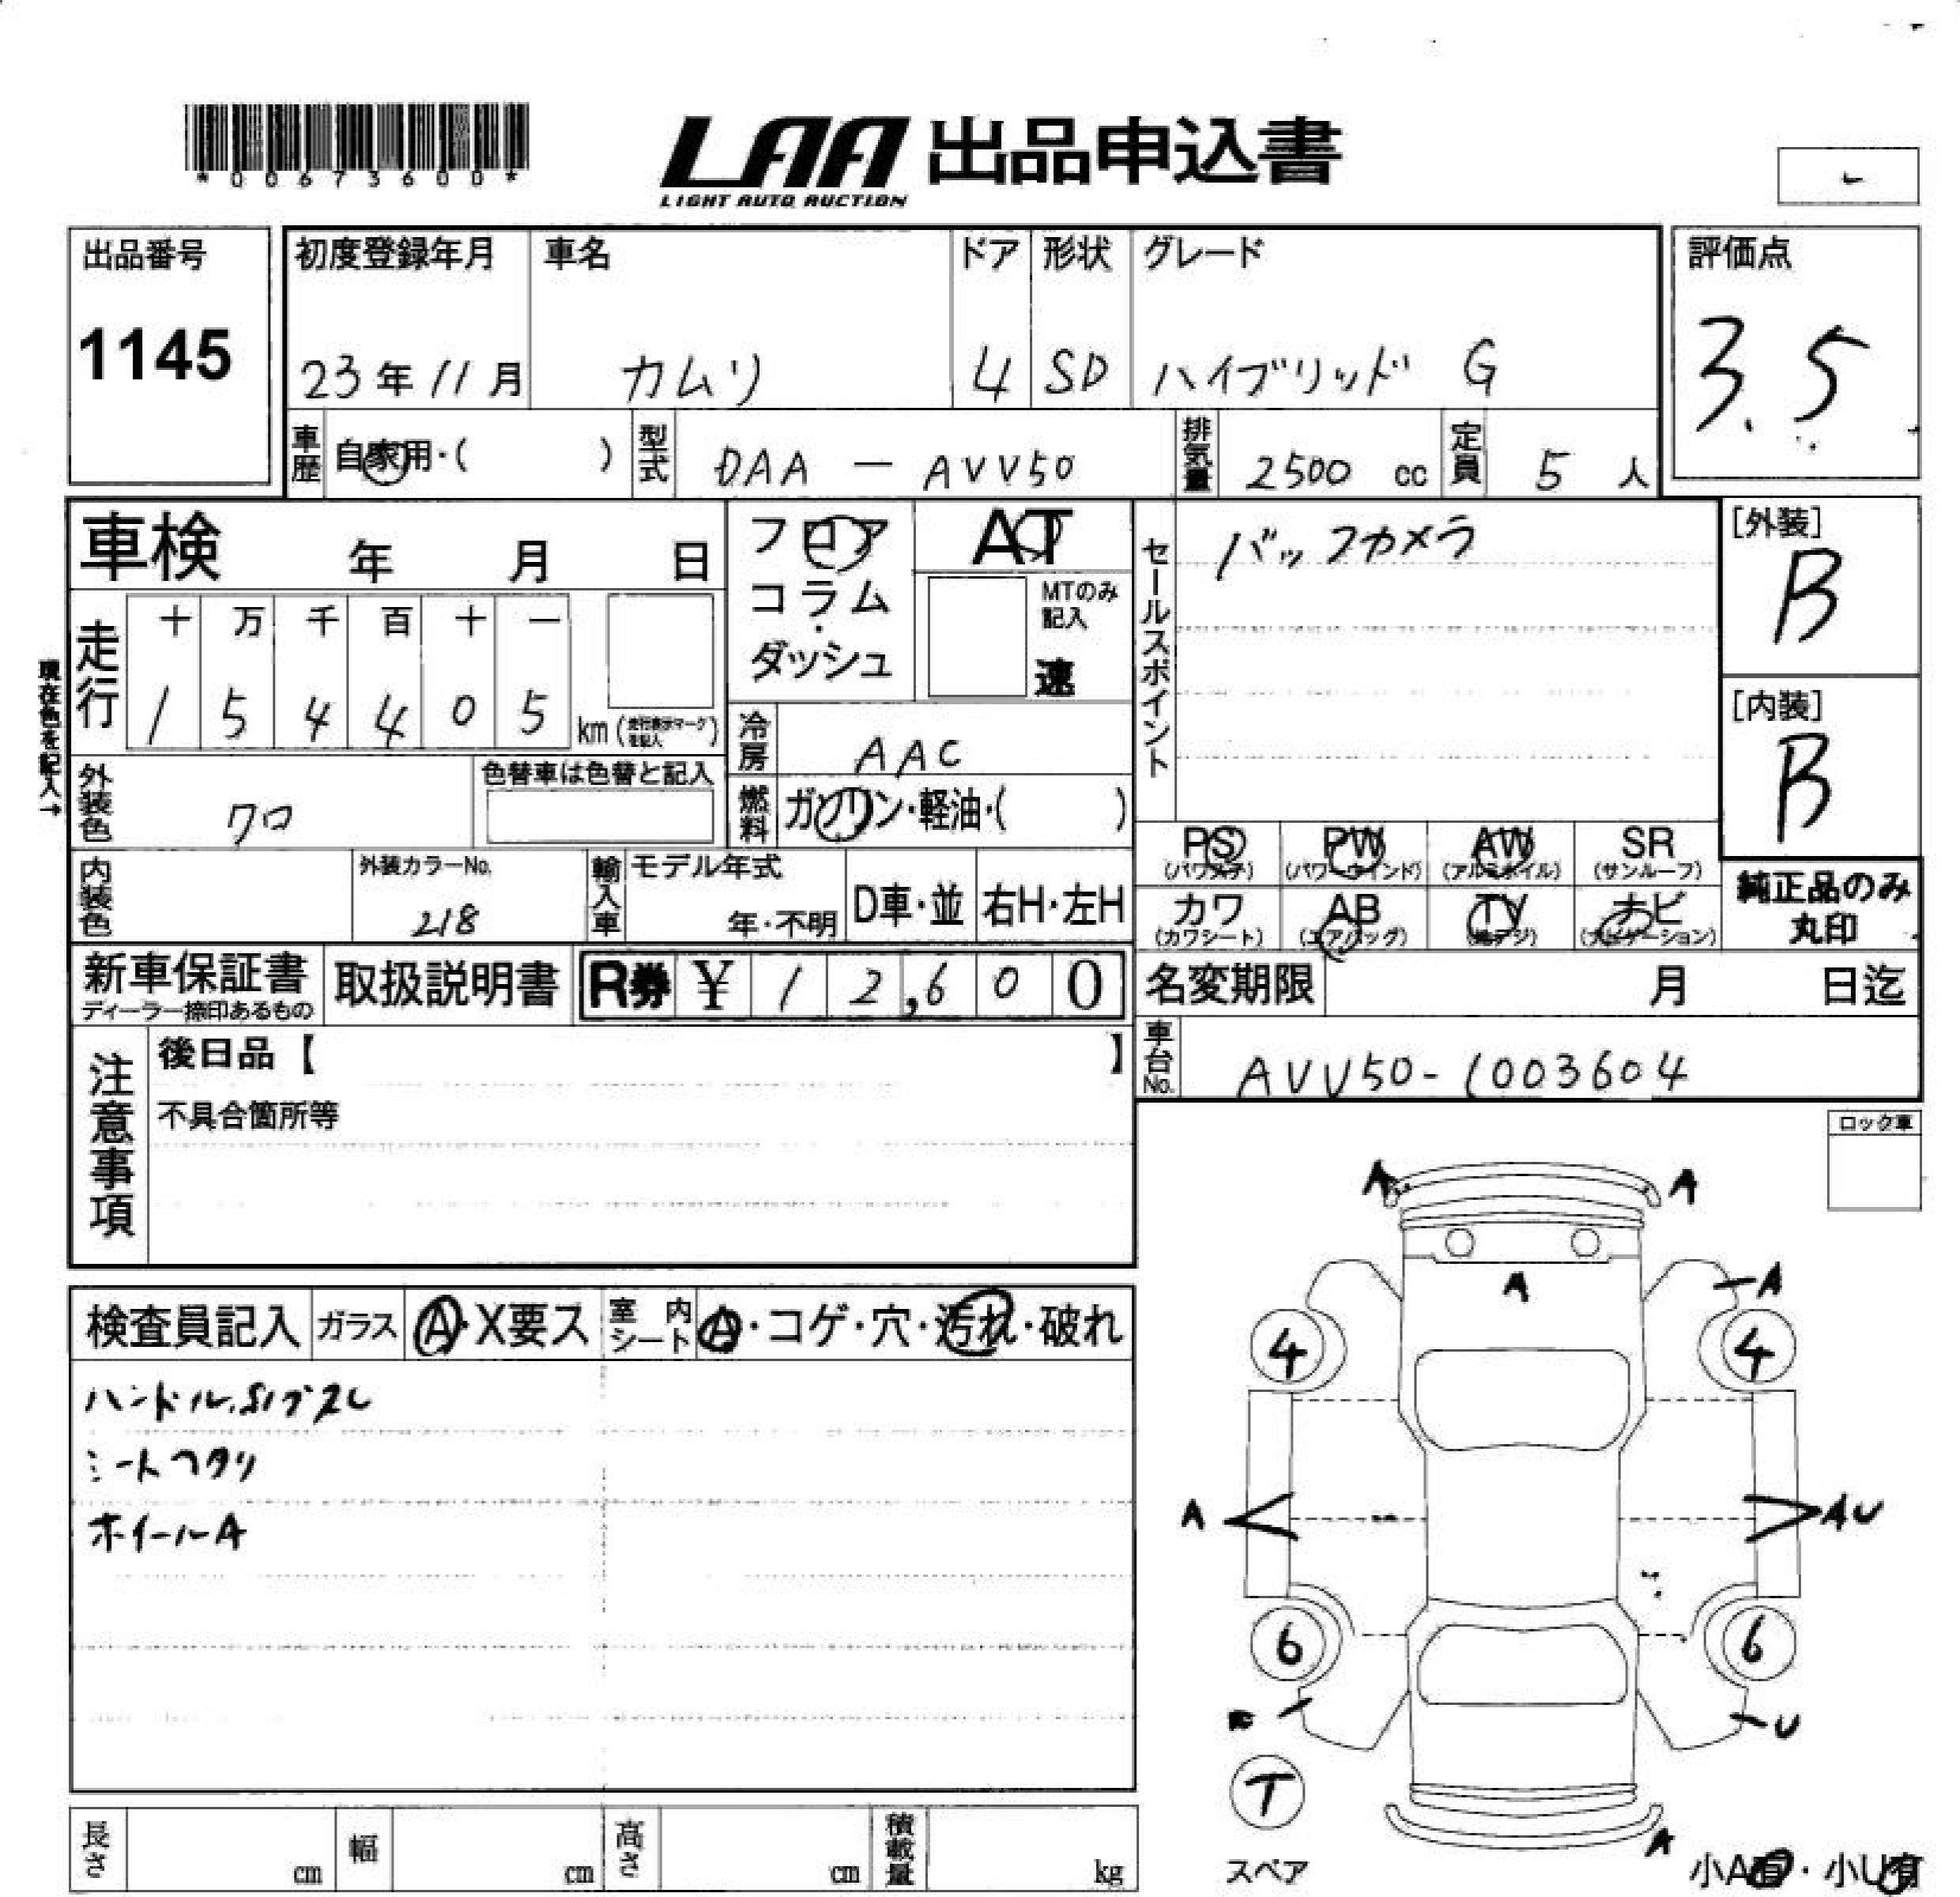 *00673600*
LAA 出品申込書
LIGHT AUTO AUCTION
出品番号
1145
初度登録年月 車名 ドア 形状 グレード
23年11月 カムリ 4 SD ハイブリッド G
評価点
3.5
車歴 自家用・( ) 型式 DAA — AVV50 排気量 2500 cc 定員 5 人
車検 年 月 日
フロア
コラム
・
ダッシュ
AT
MTのみ
記入
速
セールスポイント
バックカメラ
[外装]
B
[内装]
B
現在色を記入→
走行 十 万 千 百 十 一
1 5 4 4 0 5 km (走行表示マークを記入)
冷房 AAC
外装色 クロ 色替車は色替と記入
燃料 ガソリン・軽油・( )
PS (パワステ) PW (パワーウインド) AW (アルミホイル) SR (サンルーフ)
カワ (カワシート) AB (エアバッグ) TV (地デジ) ナビ (ナビゲーション)
純正品のみ
丸印
内装色 外装カラーNo.
218
輸入車 モデル年式
年・不明 D車・並 右H・左H
新車保証書 取扱説明書 R券 ¥ 1 2,6 0 0
ディーラー捺印あるもの
名変期限 月 日迄
車台No. AVV50-1003604
注意事項
後日品【 】
不具合箇所等
ロック車
検査員記入 ガラス A・X要ス 室内シート A・コゲ・穴・汚れ・破れ
シートヘタリ
ホイールA
A A
A
A
4 4
A AU
6 6
U
T
スペア
A
小A有・小U有
長さ cm 幅 cm 高さ cm 積載量 kg